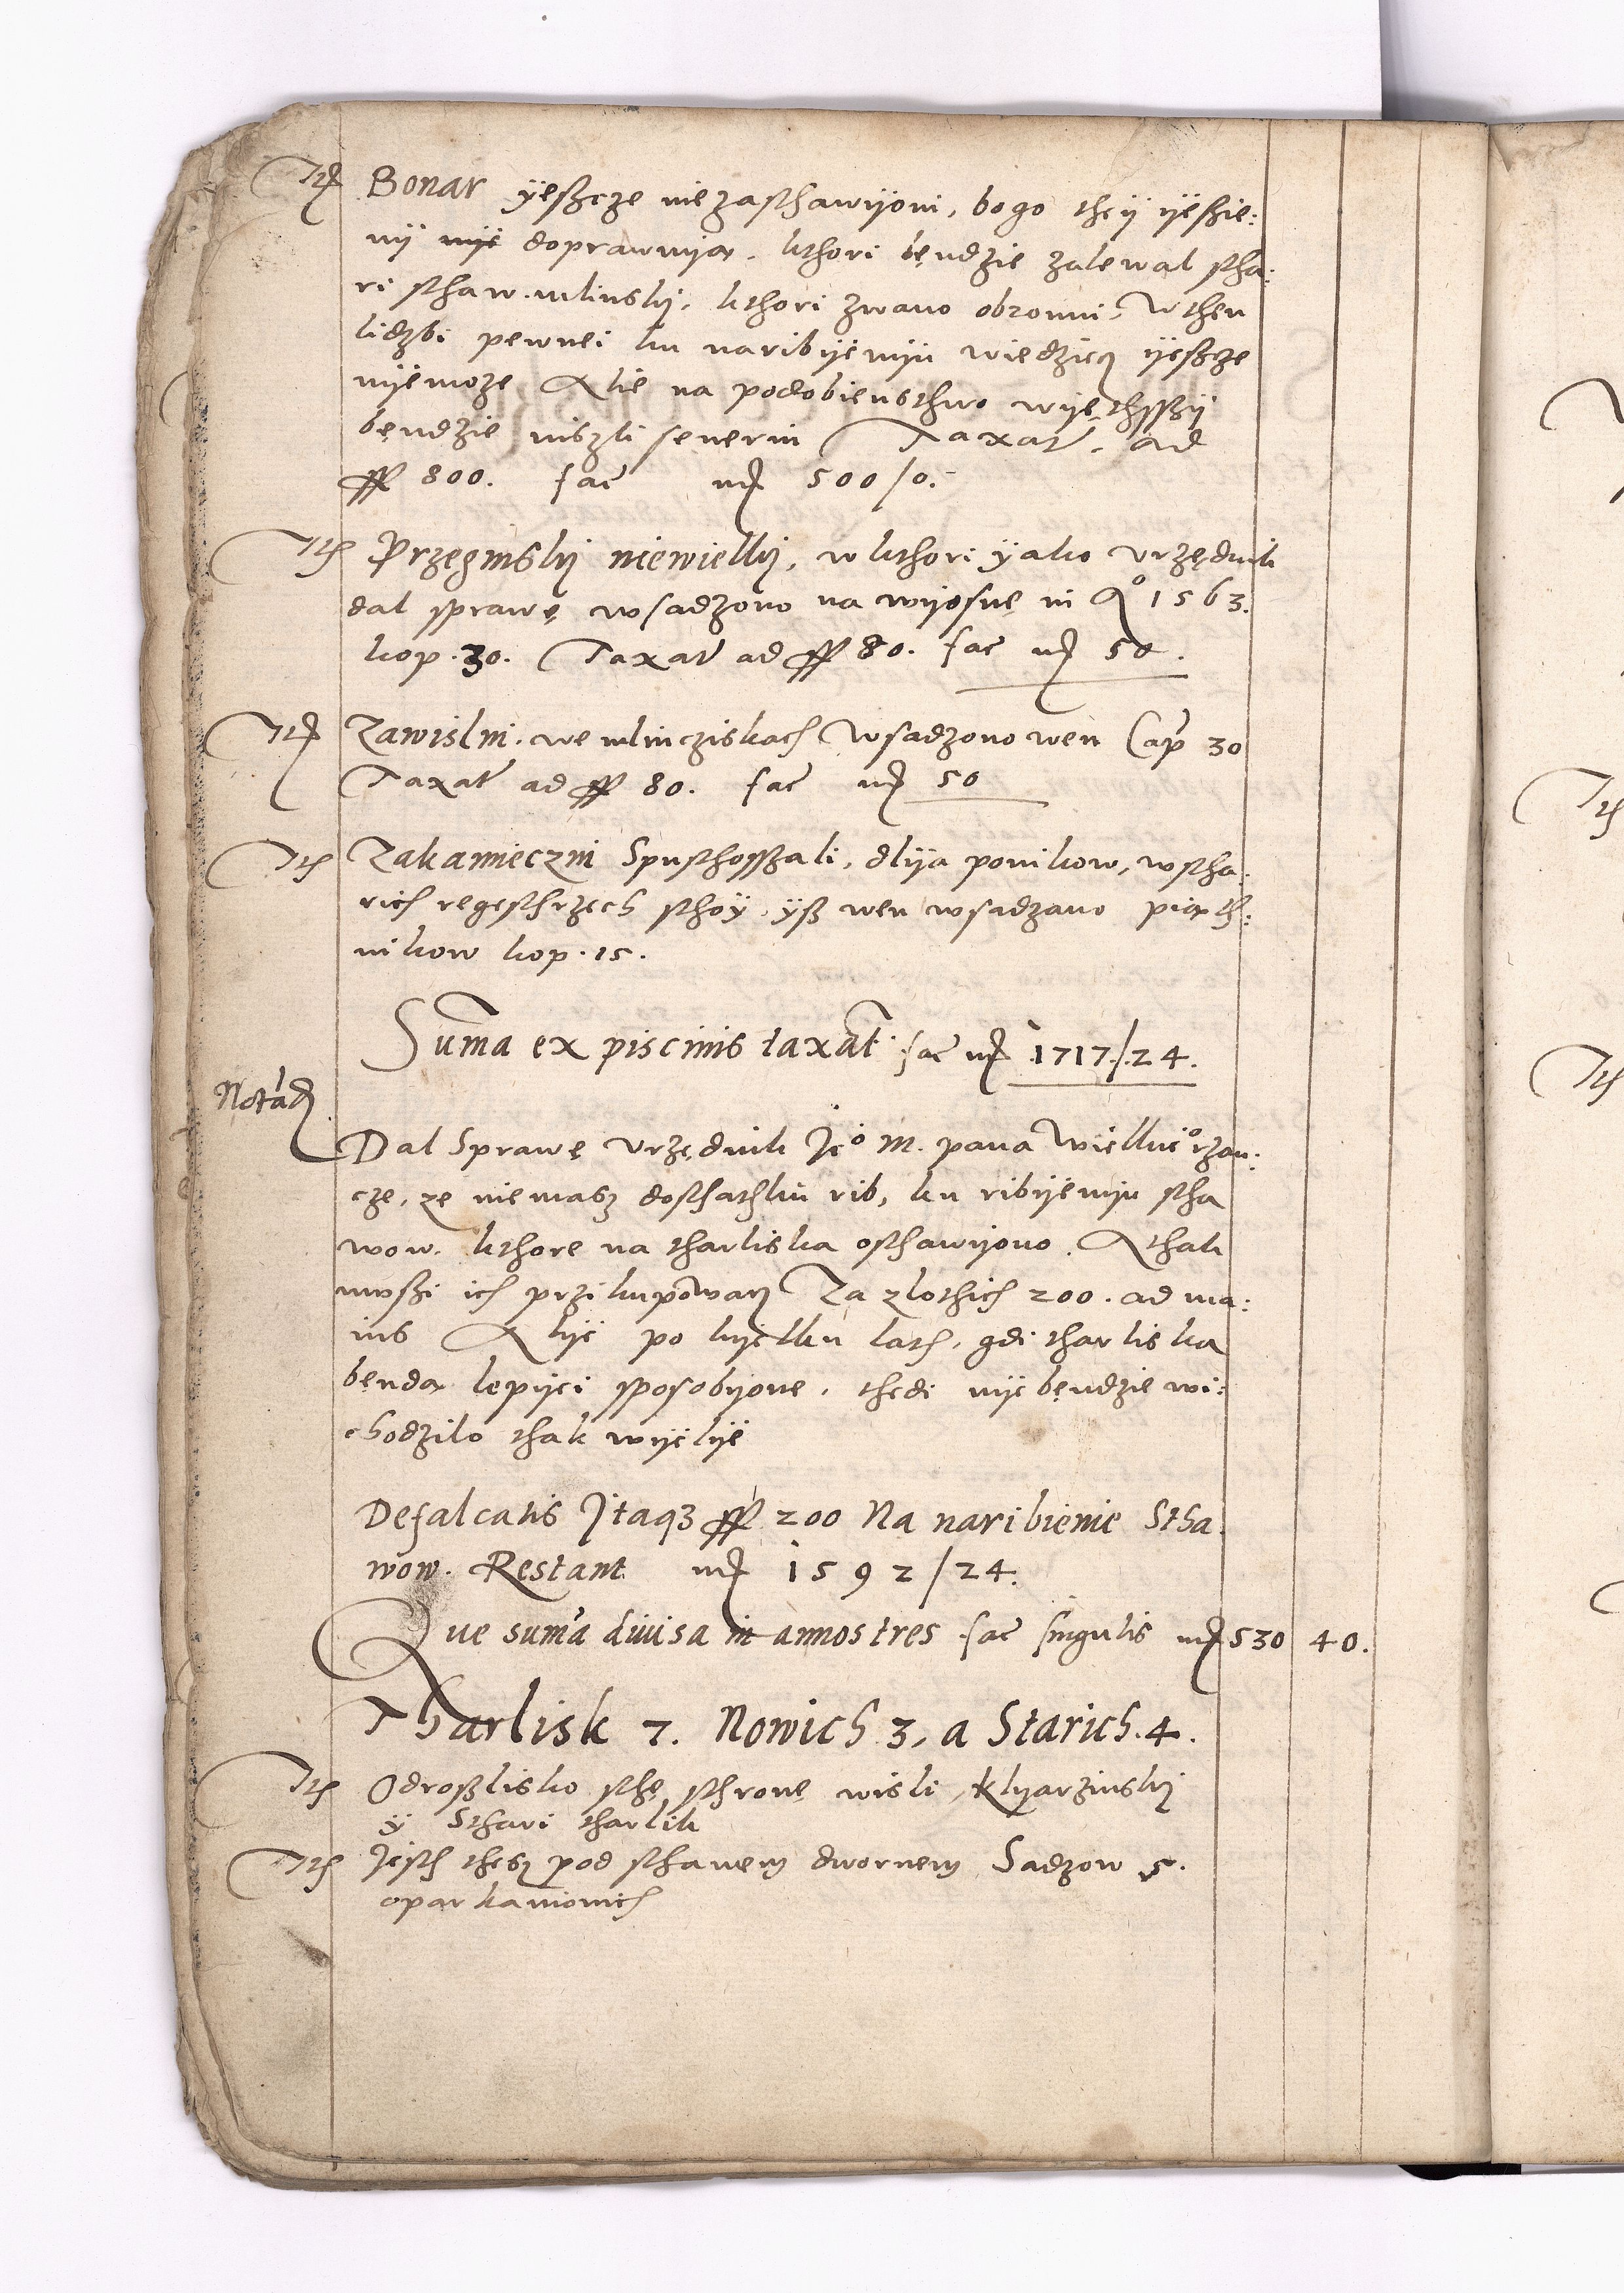 Itē Bonar yeßcze nie zasthawyoni, bo go they yeßie:
ny nye doprawuyą, kthori bendzie zalewal stha:
ri sthaw mlinsky, kthori zwano obronni, W then
lidzbi pewnei ku naribyenyu wiedziecz yeßcze
nyemoze Alie na podobiensthwo wyęthssy
bendzie niszli seuerin Taxat̄. ad
ff 800. fac̄ mr 500/0.
Itē Przeginsky niewielky, w kthori yako vrzędnik
dal sprawę wsadzono na wyosnę in Aº 1563.
kop. 30. Taxat̄ ad ff 80. fac̄ mr 50.
Itē Zawislni, we mlincziskach Wsadzono wen Cap̄ 30
Taxat̄ ad ff 80. fac̄ mr 50
Itē Zakamieczni Spusthossali, dlya ponikow, w stha:
rich regestrzech sthoy, yß wen wsadzano piąth:
nikow kop. 15.
Sum̄a ex piscinis taxat̄ fac̄ mr 1717/24.
Notād
Dal Sprawę vrzędnik Jeº M. pana Wielkieº rzan:
cze, ze niemasz dosthathku rib, ku ribyenyu stha
wow, kthore na tharliska osthawyono. A thak
mußi ich przikupowacz Za zlothich 200. ad ma:
ius Alye po kyelku lath, gdi tharliska
bendą lepyei sposobyone, thedi nye bendzie wi:
chodzilo thak wyelye
Defalcatis Itaqȝ ff 200 Na naribienie Stha
wow. Restant mr 1592/24.
Que sum̄a diuisa in annos tres fac̄ singulis mr 530 40.
Tharlisk 7. Nowich 3, a Starich 4.
Itē Odroßlisko sthę sthronę wisli, Klyarzinsky
y Sthari tharlik
Itē Jesth thesz pod sthawem dwornem Sadzow 5.
oparkanionich